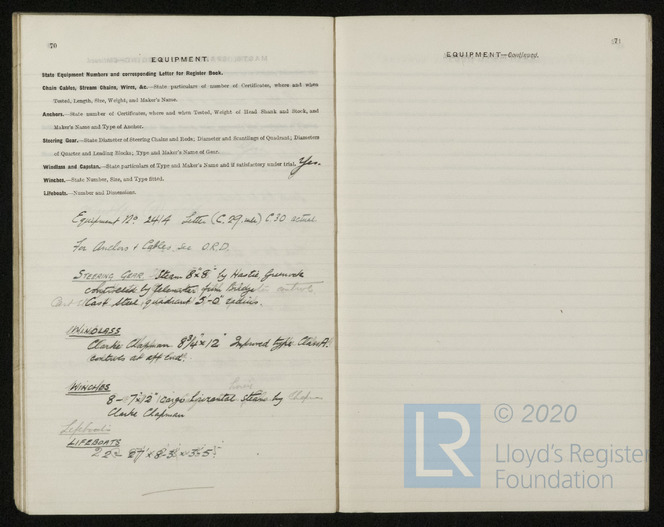 70
EQUIPMENT.
State Equipment Numbers and corresponding Letter for Register Book.
Chain Cables, Stream Chains, Wires, &c.—State particulars of number of Certificates, where and when
Tested, Length, Size, Weight, and Maker's Name.
Anchors.—State number of Certificates, where and when Tested, Weight of Head Shank and Stock, and
Maker's Name and Type of Anchor.
Steering Gear.—State Diameter of Steering Chains and Rods; Diameter and Scantlings of Quadrant; Diameters
of Quarter and Leading Blocks; Type and Maker's Name of Gear.
Windlass and Capstan.—State particulars of Type and Maker's Name and if satisfactory under trial. Yes.
Winches.—State Number, Size, and Type fitted.
Lifeboats.—Number and Dimensions.
Equipment No. 2414 Letter (C.29. ) C30 actual.
For Anchors & Cables, see O.R.D.
STEERING GEAR Steam 8"x8" by Hastie Greenock
controlled by telemotor from Bridge
Cast Steel quadrant 5'-0" radius.
WINDLASS
Clarke Chapman 8 3/4" x 12" Improved type Class A.
controls at aft end.
WINCHES
8 - 7"x12" cargo horizontal steam by
Clarke Chapman
Lifeboats
LIFEBOATS
71
EQUIPMENT—Continued.
© 2020
LR
Lloyd's Register
Foundation